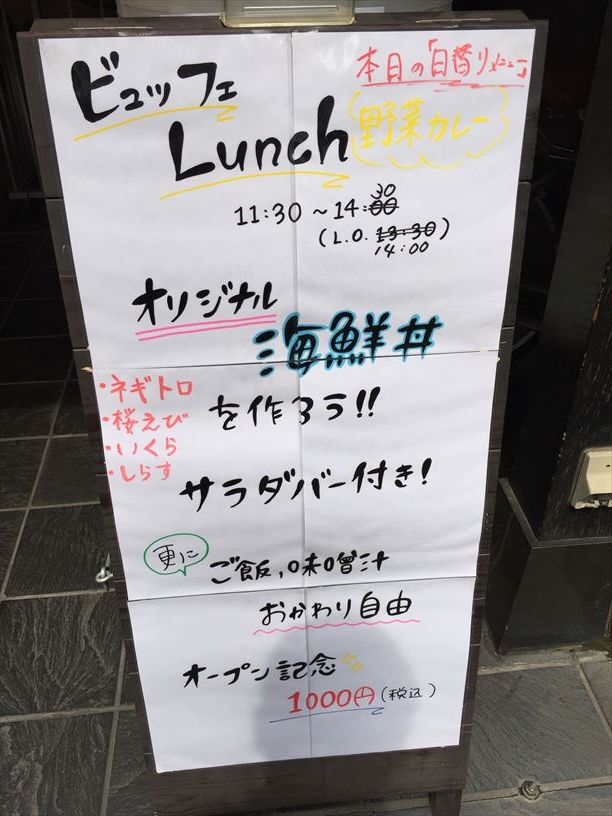 ビュッフェ
Lunch
本日の「日替りメニュー」
野菜カレー
11:30～14:00
30
(L.O. 13:30)
14:00
オリジナル
海鮮丼
・ネギトロ
・桜えび
・いくら
・しらす
を作ろう!!
サラダバー付き!
更に
ご飯,味噌汁
おかわり自由
オープン記念
1000円(税込)